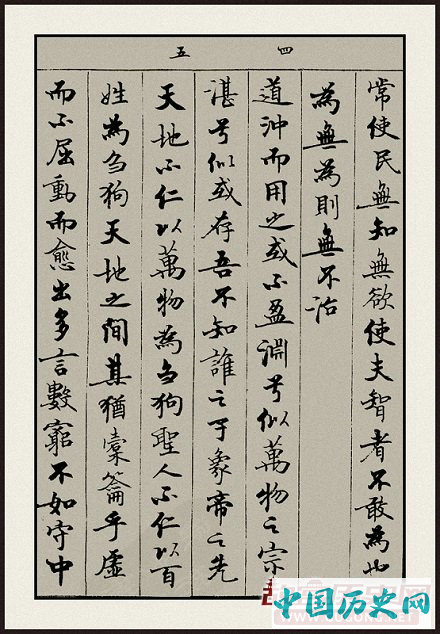 四
五
常使民無知無欲使夫智者不敢為也
為無為則無不治
道沖而用之或不盈淵兮似萬物之宗
湛兮似或存吾不知誰之子象帝之先
天地不仁以萬物為刍狗聖人不仁以百
姓為刍狗天地之間其猶橐籥乎虛
而不屈動而愈出多言數窮不如守中
中国历史网